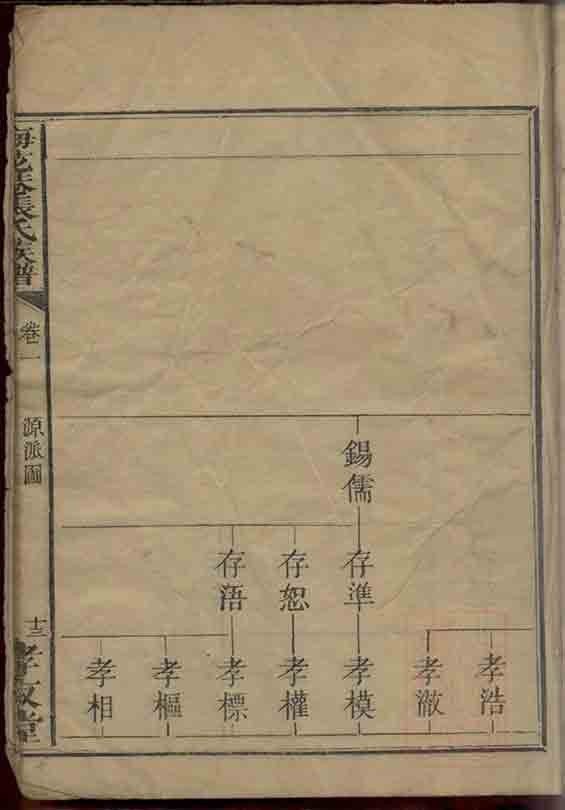 錫儒
存準
存恕
存浯
孝浩
孝澂
孝模
孝權
孝標
孝樞
孝相
張氏族譜
卷一
源派圖
十三